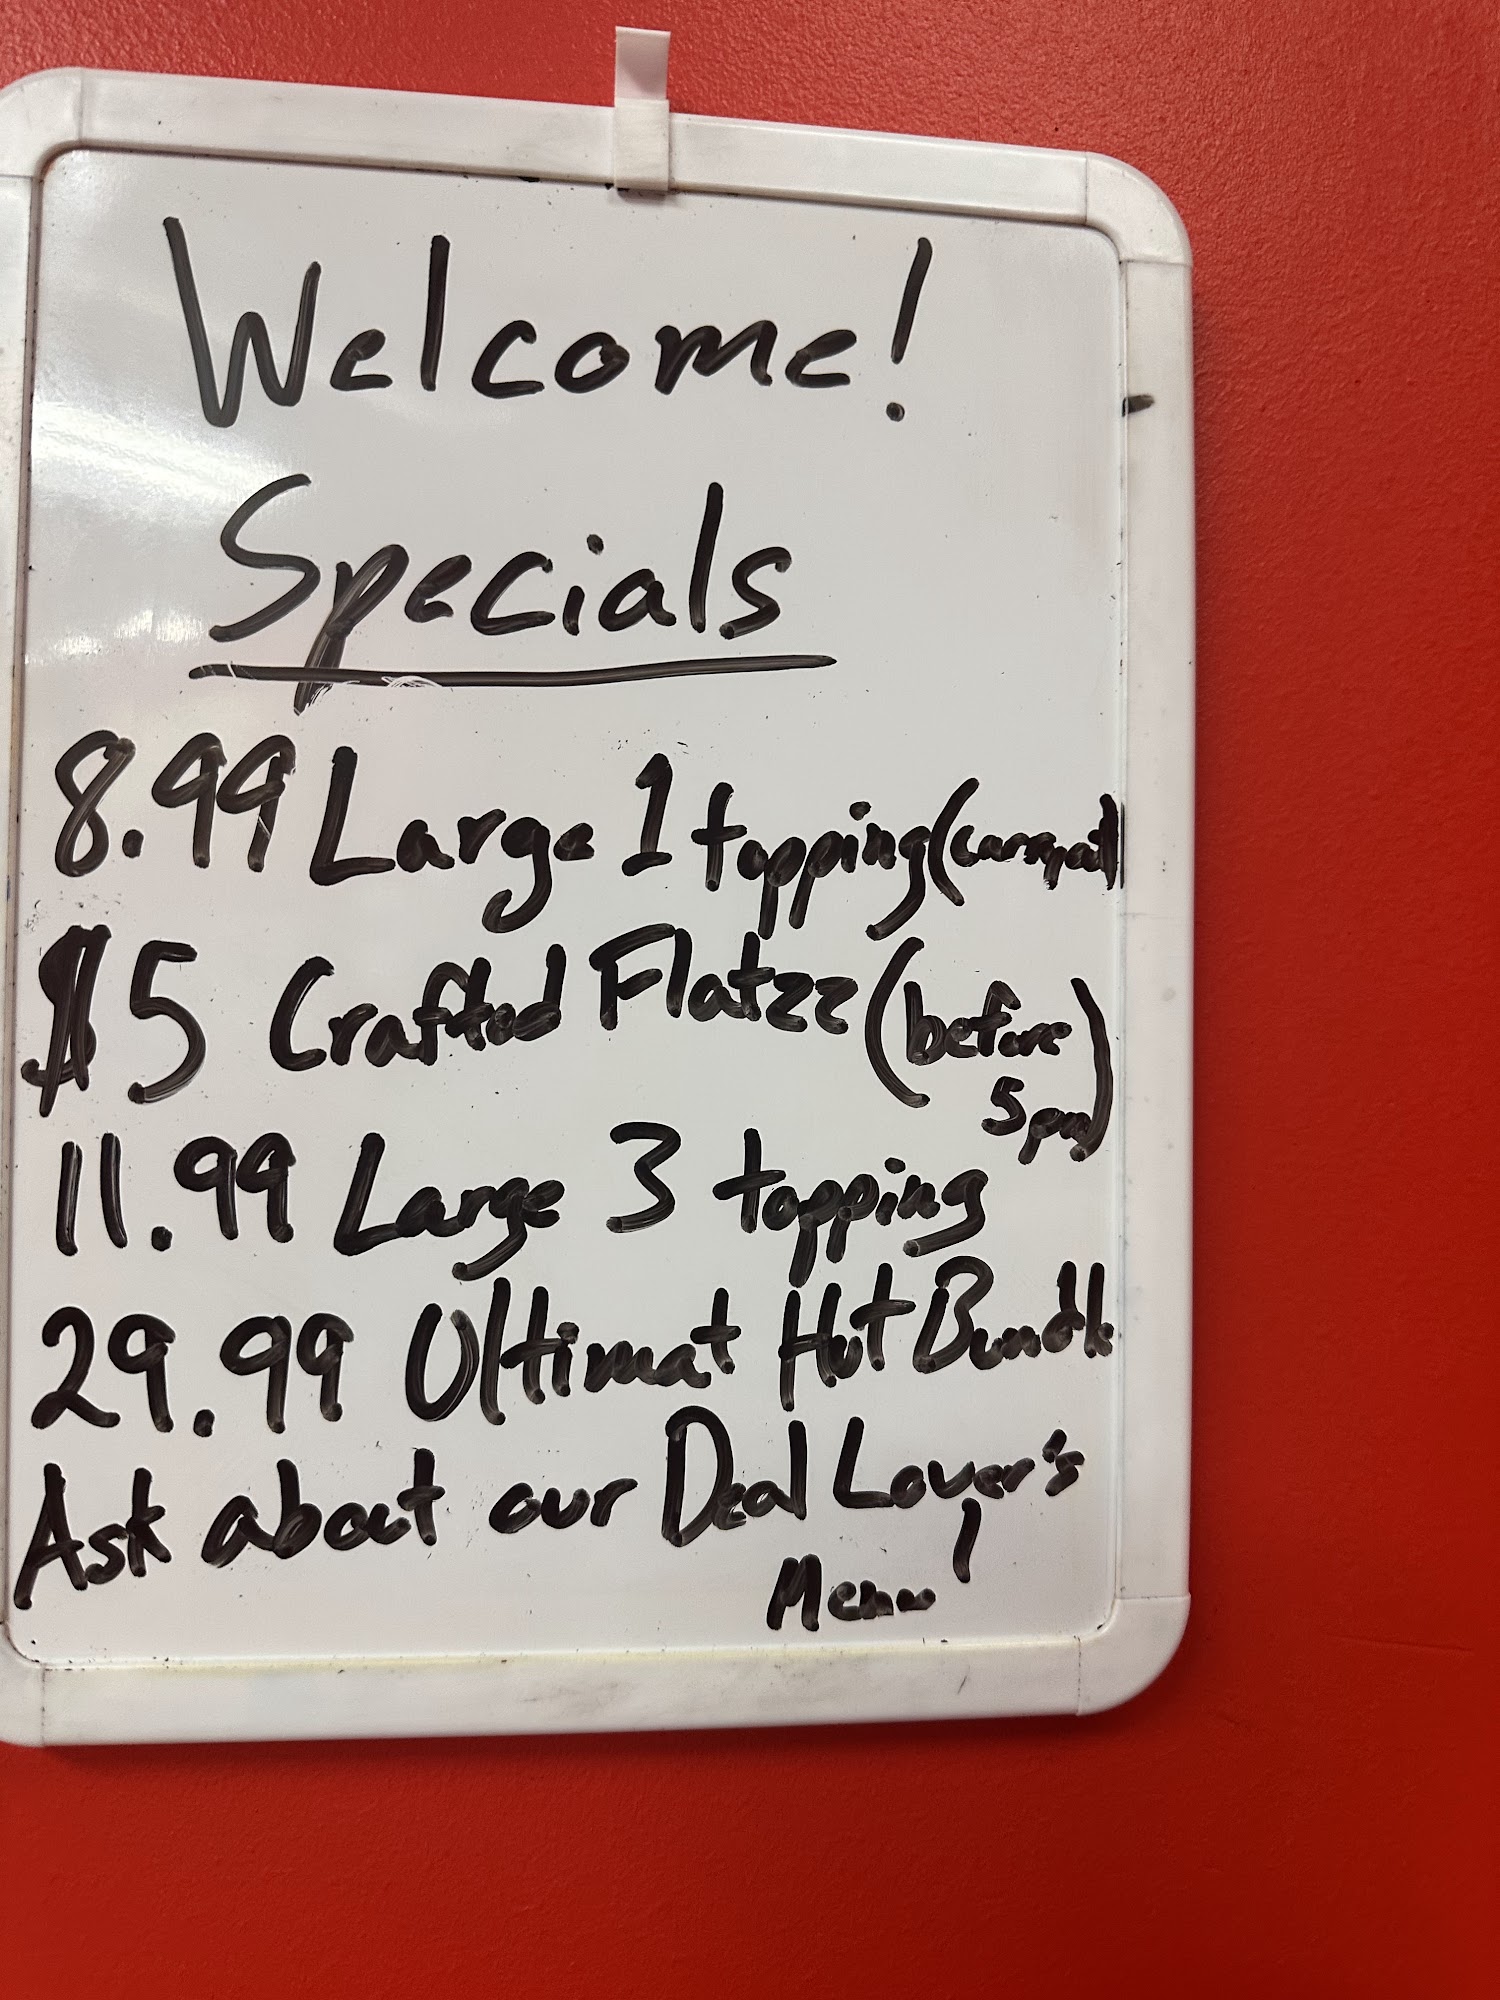 Welcome!
Specials
8.99 Large 1 topping (carryout)
$5 Crafted Flatzz (before
5pm)
11.99 Large 3 topping
29.99 Ultimat Hut Bundle
Ask about our Deal Lover's
Menu